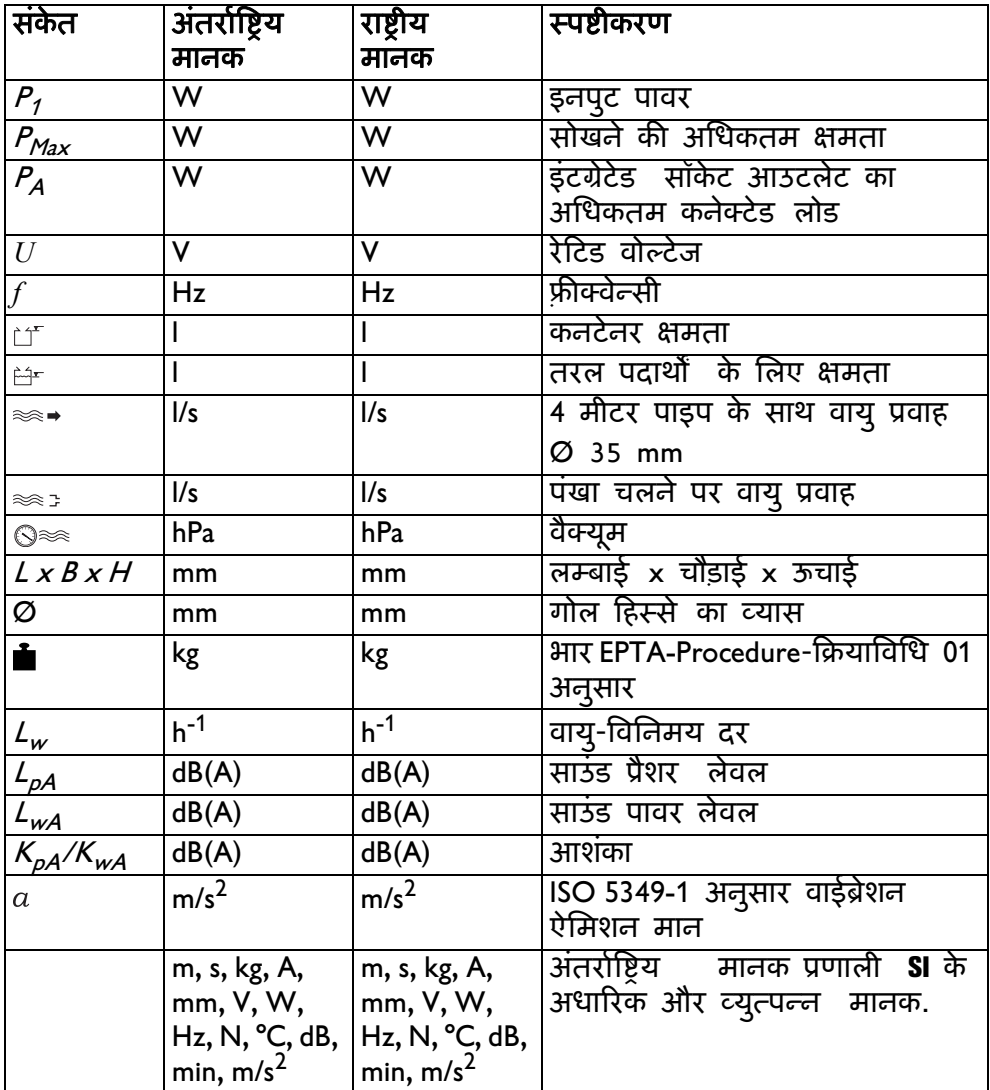 संकेत अंतर्राष्ट्रिय मानक राष्ट्रीय मानक स्पष्टीकरण
P1 W W इनपुट पावर
PMax W W सोखने की अधिकतम क्षमता
PA W W इंटग्रेटेड सॉकेट आउटलेट का
अधिकतम कनेक्टेड लोड
U V V रेटिड वोल्टेज
f Hz Hz फ़्रीक्वेन्सी
l l कनटेनर क्षमता
l l तरल पदार्थों के लिए क्षमता
l/s l/s 4 मीटर पाइप के साथ वायु प्रवाह
Ø 35 mm
l/s l/s पंखा चलने पर वायु प्रवाह
hPa hPa वैक्यूम
L x B x H mm mm लम्बाई x चौड़ाई x ऊचाई
Ø mm mm गोल हिस्से का व्यास
kg kg भार EPTA-Procedure-क्रियाविधि 01
अनुसार
Lw h-1 h-1 वायु-विनिमय दर
LpA dB(A) dB(A) साउंड प्रैशर लेवल
LwA dB(A) dB(A) साउंड पावर लेवल
KpA/KwA dB(A) dB(A) आशंका
a m/s2 m/s2 ISO 5349-1 अनुसार वाईब्रेशन
ऐमिशन मान
m, s, kg, A, m, s, kg, A, अंतर्राष्ट्रिय मानक प्रणाली SI के
mm, V, W, mm, V, W, अधारिक और व्युत्पन्न मानक.
Hz, N, °C, dB, Hz, N, °C, dB,
min, m/s2 min, m/s2